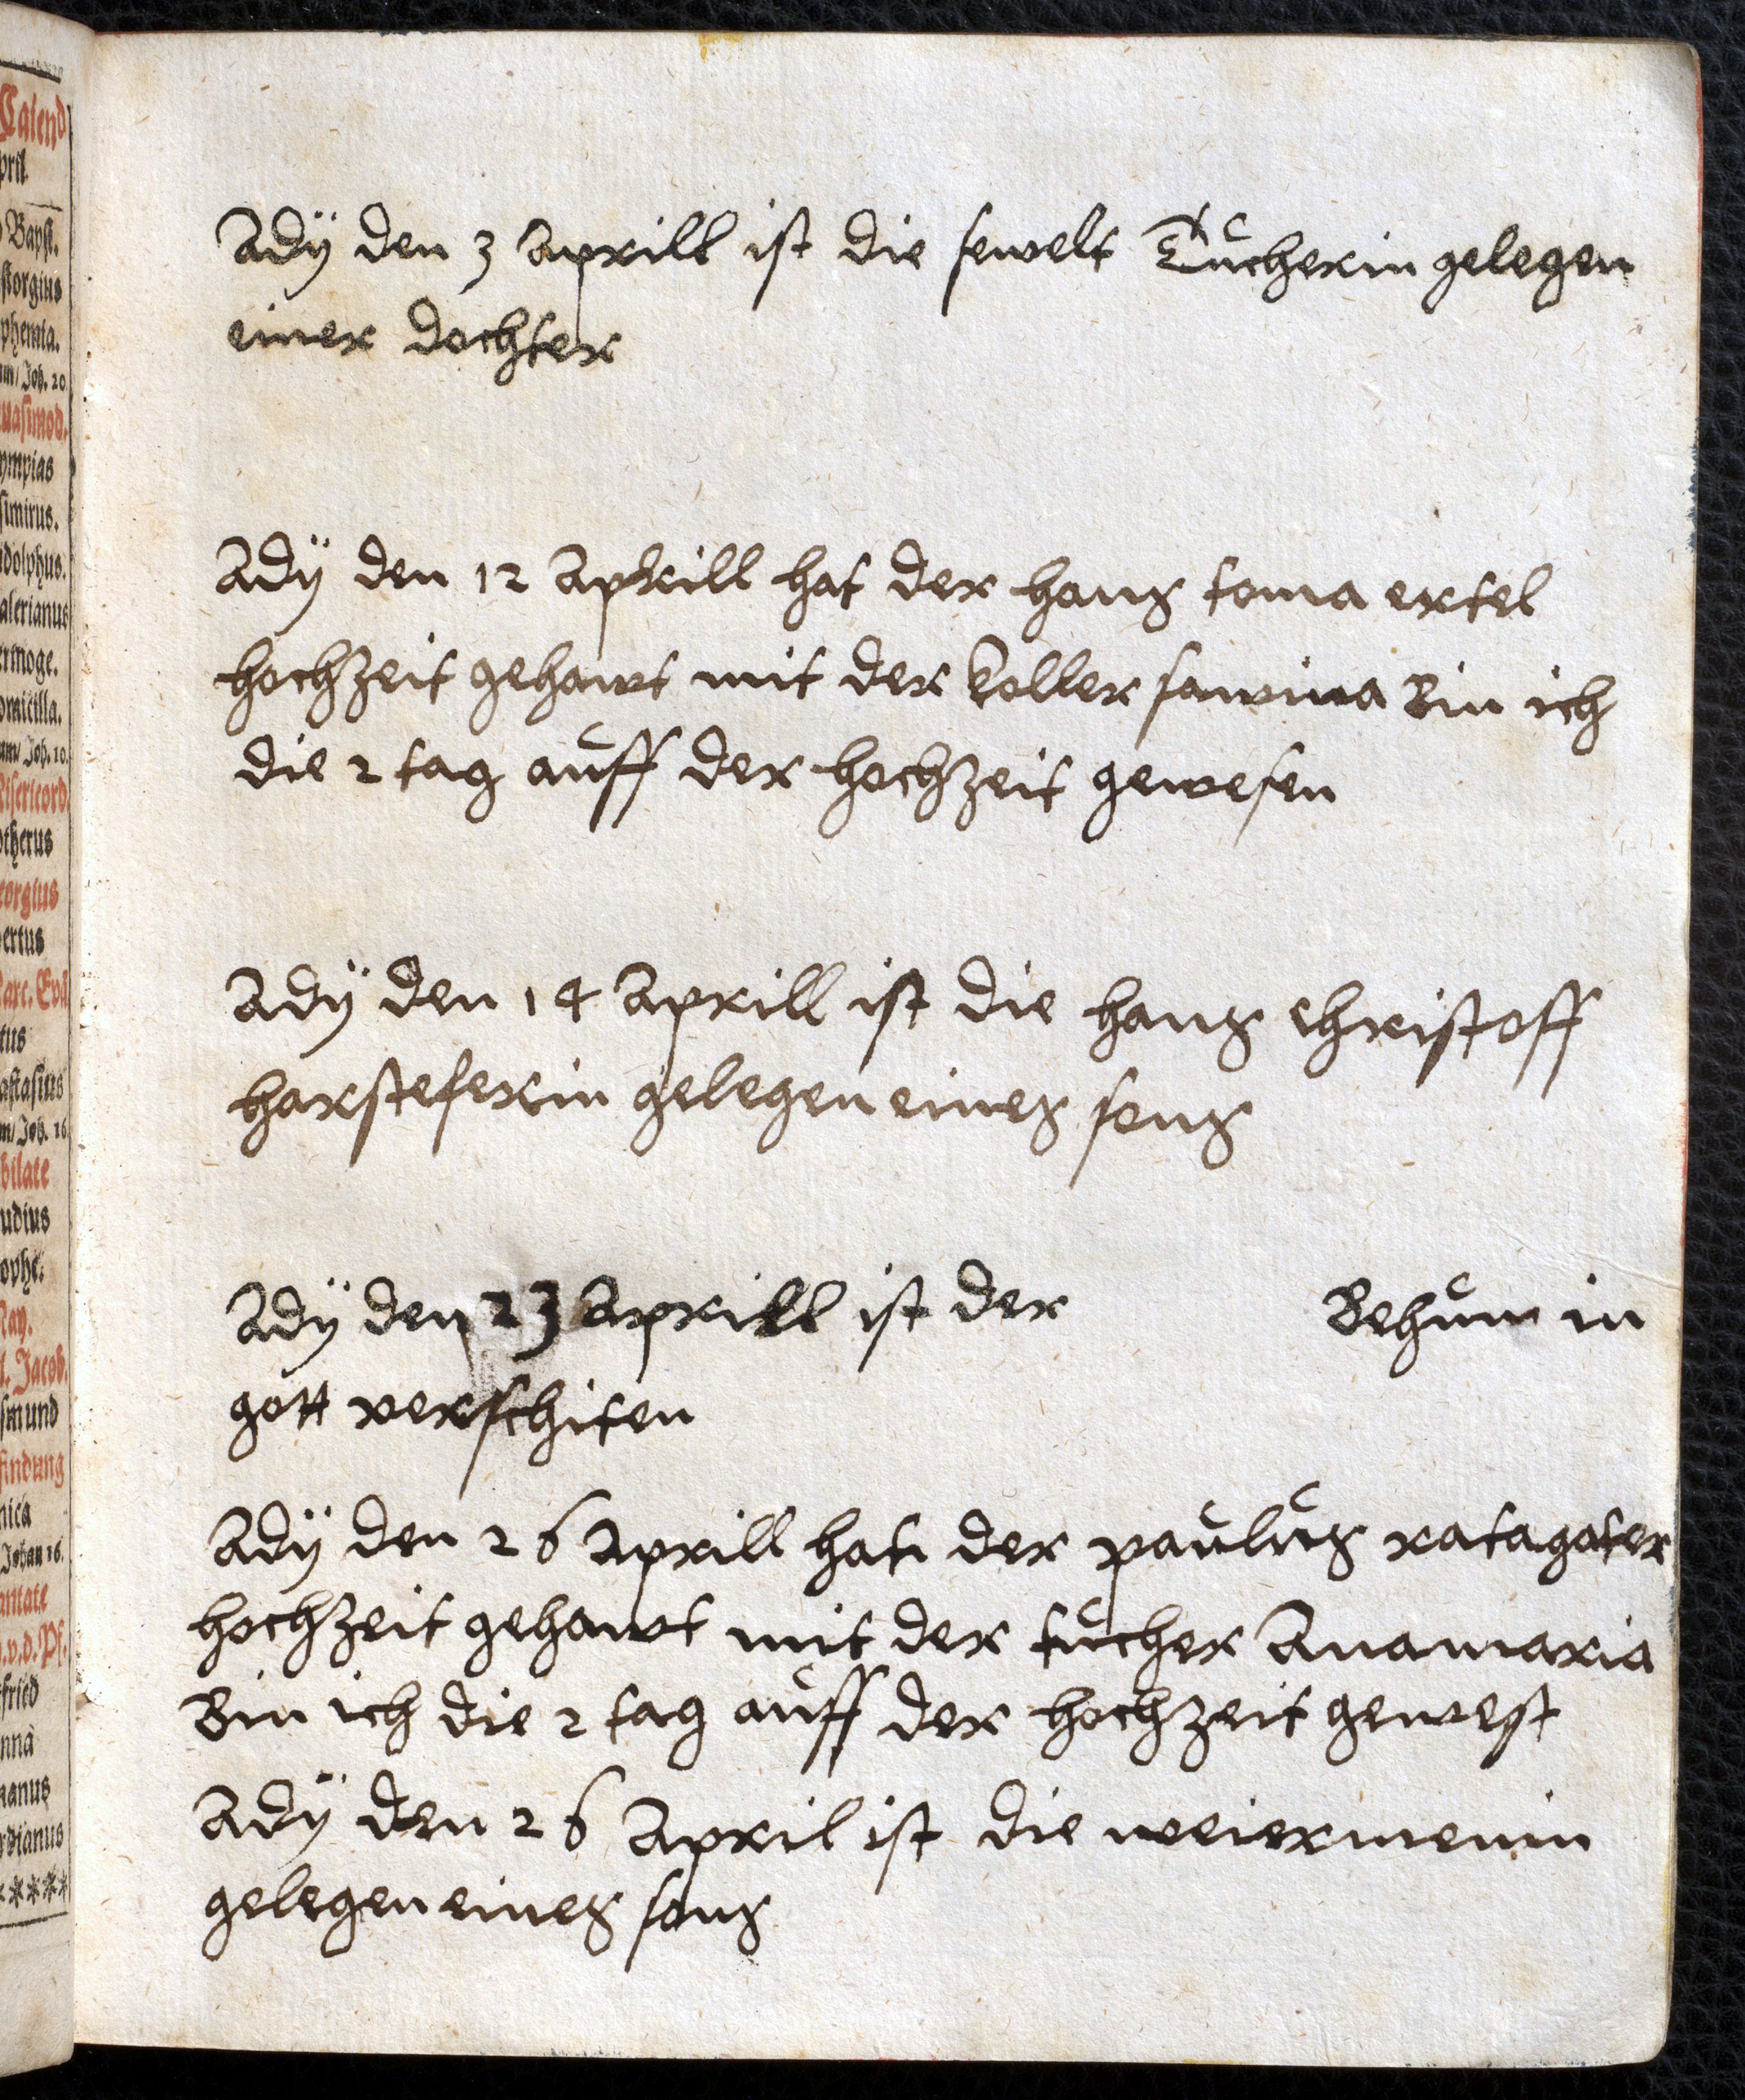 Calend
pril
Bapst.
storgius
phemia.
m/ Joh. 20
uasimod.
ympias
simirus.
dolphus.
alerianus
ermoge.
omicilla.
am/ Joh. 10.
isericord.
otherus
eorgius
ertus
arc. Eva
tus
astasius
m/ Joh. 16
bilate
udius
ophe.
May.
l. Jacob.
smund
findung
nica
Johan 16.
antate
.v.d. Pf.
fried
nna
nanus
rdianus
****
Adÿ den 3 Aprill ist die sewelt Tucherin gelegen
einer dochter
Adÿ den 12 Aprill hat der hans toma ertel
hochzeit gehawt mit der koller sawina Bin ich
die 2 tag auff der hochzeit gewesen
Adÿ den 14 Aprill ist die hans christoff
harsteferin gelegen eines sons
Adÿ den 23 Aprill ist der Behum in
gott verschiten
Adÿ den 26 Aprill hat der paulus ratagater
hochzeit gehawt mit der tucher Anamaria
Bin ich die 2 tag auff der hochzeit gewest
Adÿ den 26 April ist die weiermenin
gelegen eines sons